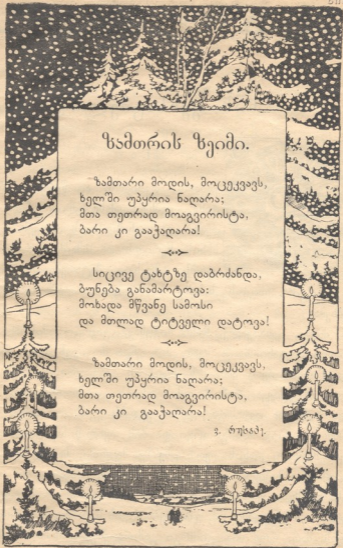 ზამთრის ზეიმი.
ზამთარი მოდის, მოცეკვავს,
ხელში უპყრია ნაღარა;
მთა თეთრად მოაგვირისტა,
ბარი კი გააჭაღარა!
სიცივე ტახტზე დაბრძანდა,
ბუნება განამარტოვა:
მოხადა მწვანე სამოსი
და მთლად ტიტველი დატოვა!
ზამთარი მოდის, მოცეკვავს,
ხელში უპყრია ნაღარა;
მთა თეთრად მოაგვირისტა,
ბარი კი გააჭაღარა!